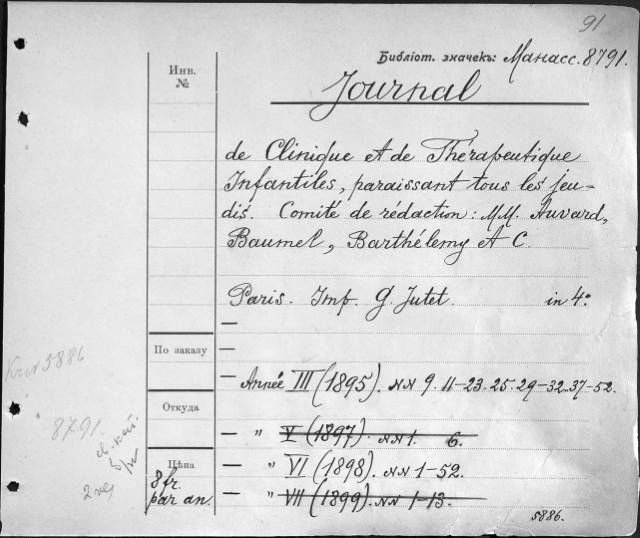 91
Библіот. значекъ: Манасс. 8791.
Инв.
№
Journal
de Clinique et de Thérapeutique
Infantiles, paraissant tous les jeu-
dis. Comité de rédaction: MM. Auvard,
Baumel, Barthélemy et C.
Paris. Imp. G. Jutet. in 4º
По заказу
Année III (1895). NN 9. 11-23. 25. 29-32. 37-52.
5886
Откуда
8791.
— " V (1897). NN 1. 6.
Цѣна
— " VI (1898). NN 1-52.
8 fr.
par an.
— " VII (1899). NN 1-13.
5886.